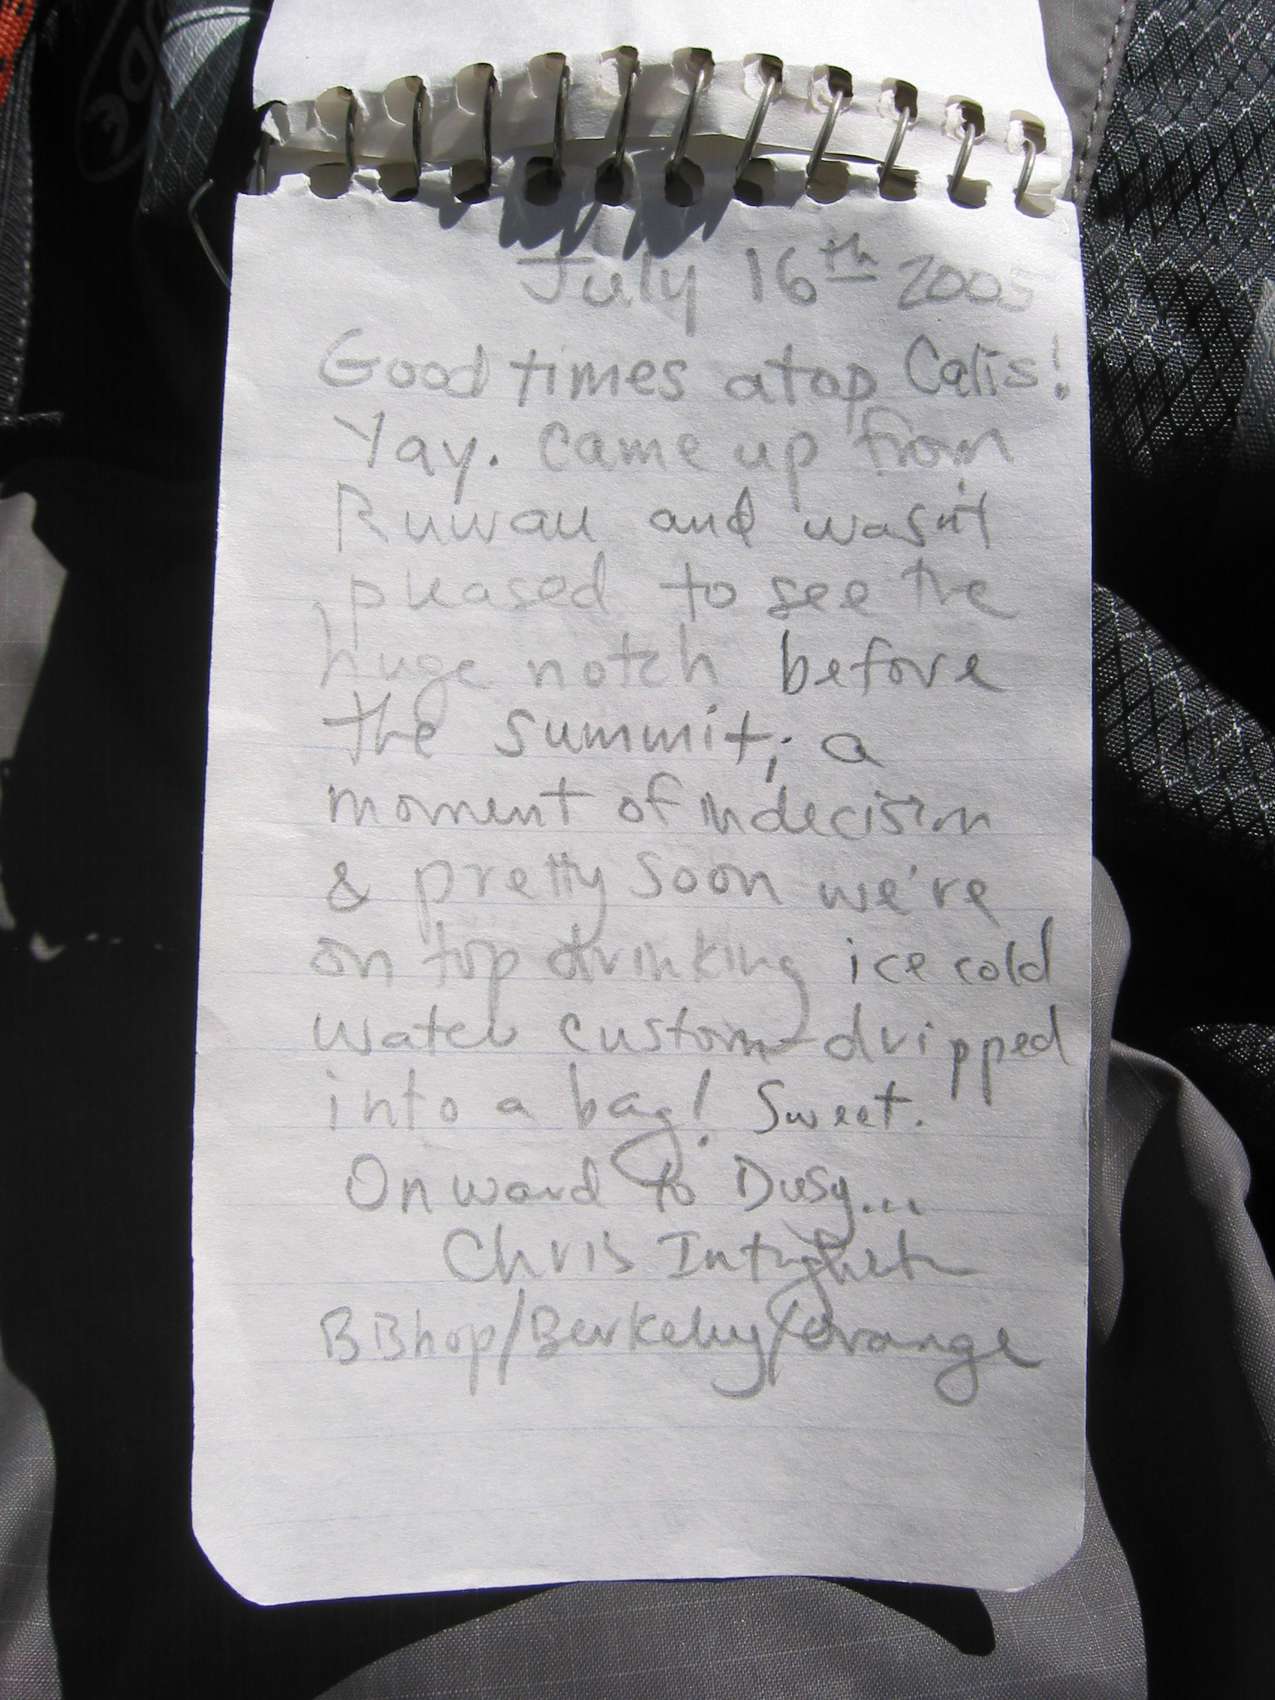 July 16th 2005
Good times atop Calis!
Yay. Came up from
Ruwau and wasn't
pleased to see the
huge notch before
the summit; a
moment of indecision
& pretty soon we're
on top drinking ice cold
water custom-dripped
into a bag! Sweet.
Onward to Dusy...
Chris
/Berkeley/Orange